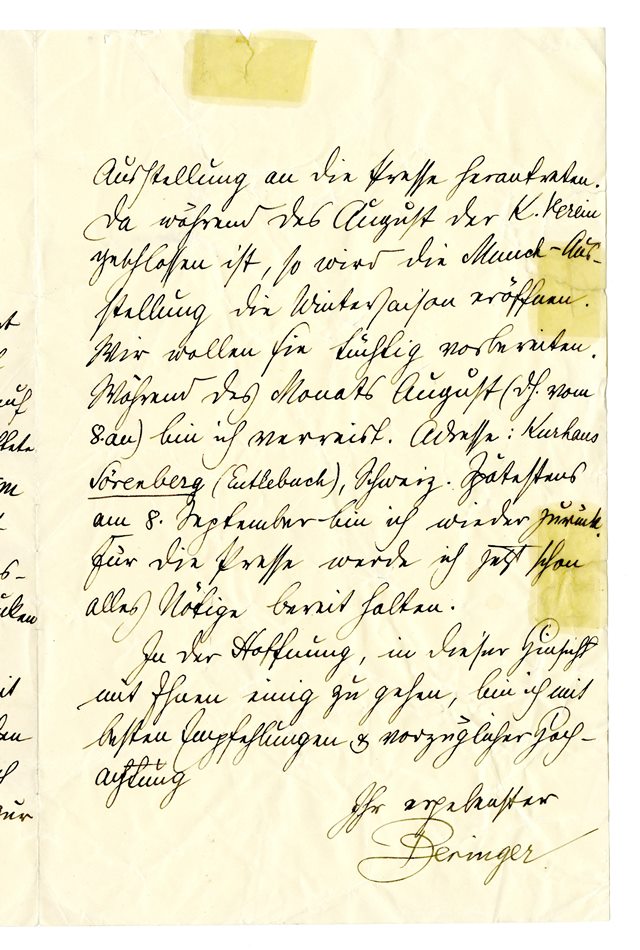 Ausstellung an die Presse herantreten.
Da während des August der K. Verein
geschlossen ist, so wird die Munch-Aus-
stellung die Wintersaison eröffnen.
Wir wollen sie tüchtig vorbereiten.
Während des Monats August (d.h. vom
8. an) bin ich verreist. Adresse: Kurhaus
Sörenberg (Entlebuch), Schweiz. Spätestens
am 8. September bin ich wieder zurück.
Für die Presse werde ich jetzt schon
alles Nötige bereit halten.
In der Hoffnung, in dieser Hinsicht
mit Ihnen einig zu gehen, bin ich mit
besten Empfehlungen & vorzüglicher Hoch-
achtung
Ihr ergebenster
Beringer